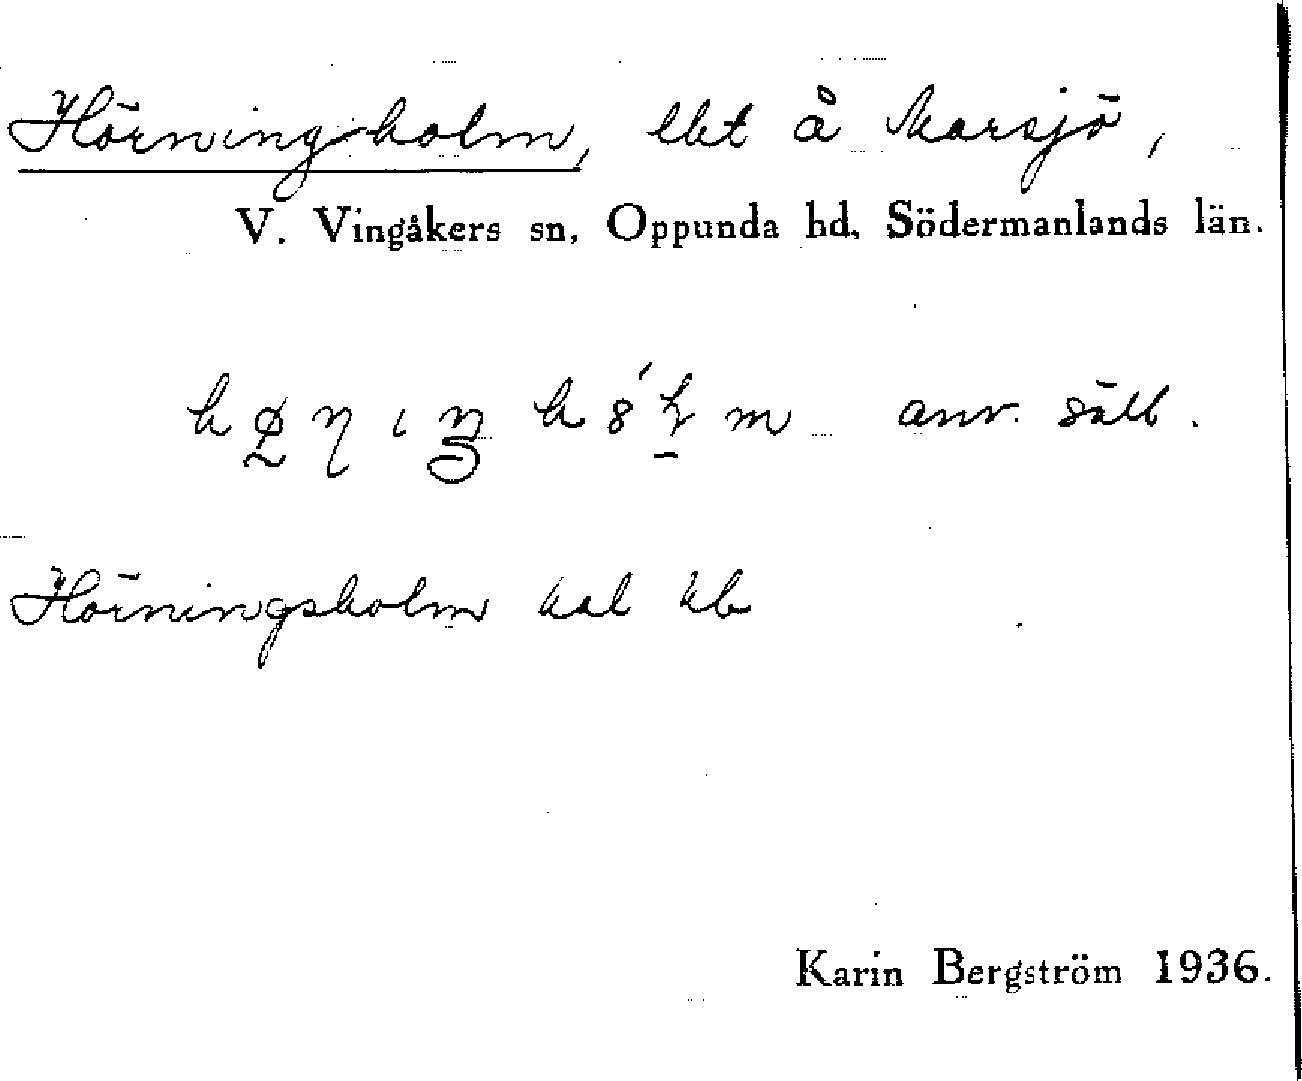 Hörningsholm, lht å Marsjö,
V. Vingåkers sn, Oppunda hd, Södermanlands län.
anv. säll.
Hörningsholm hal kb
Karin Bergström 1936.